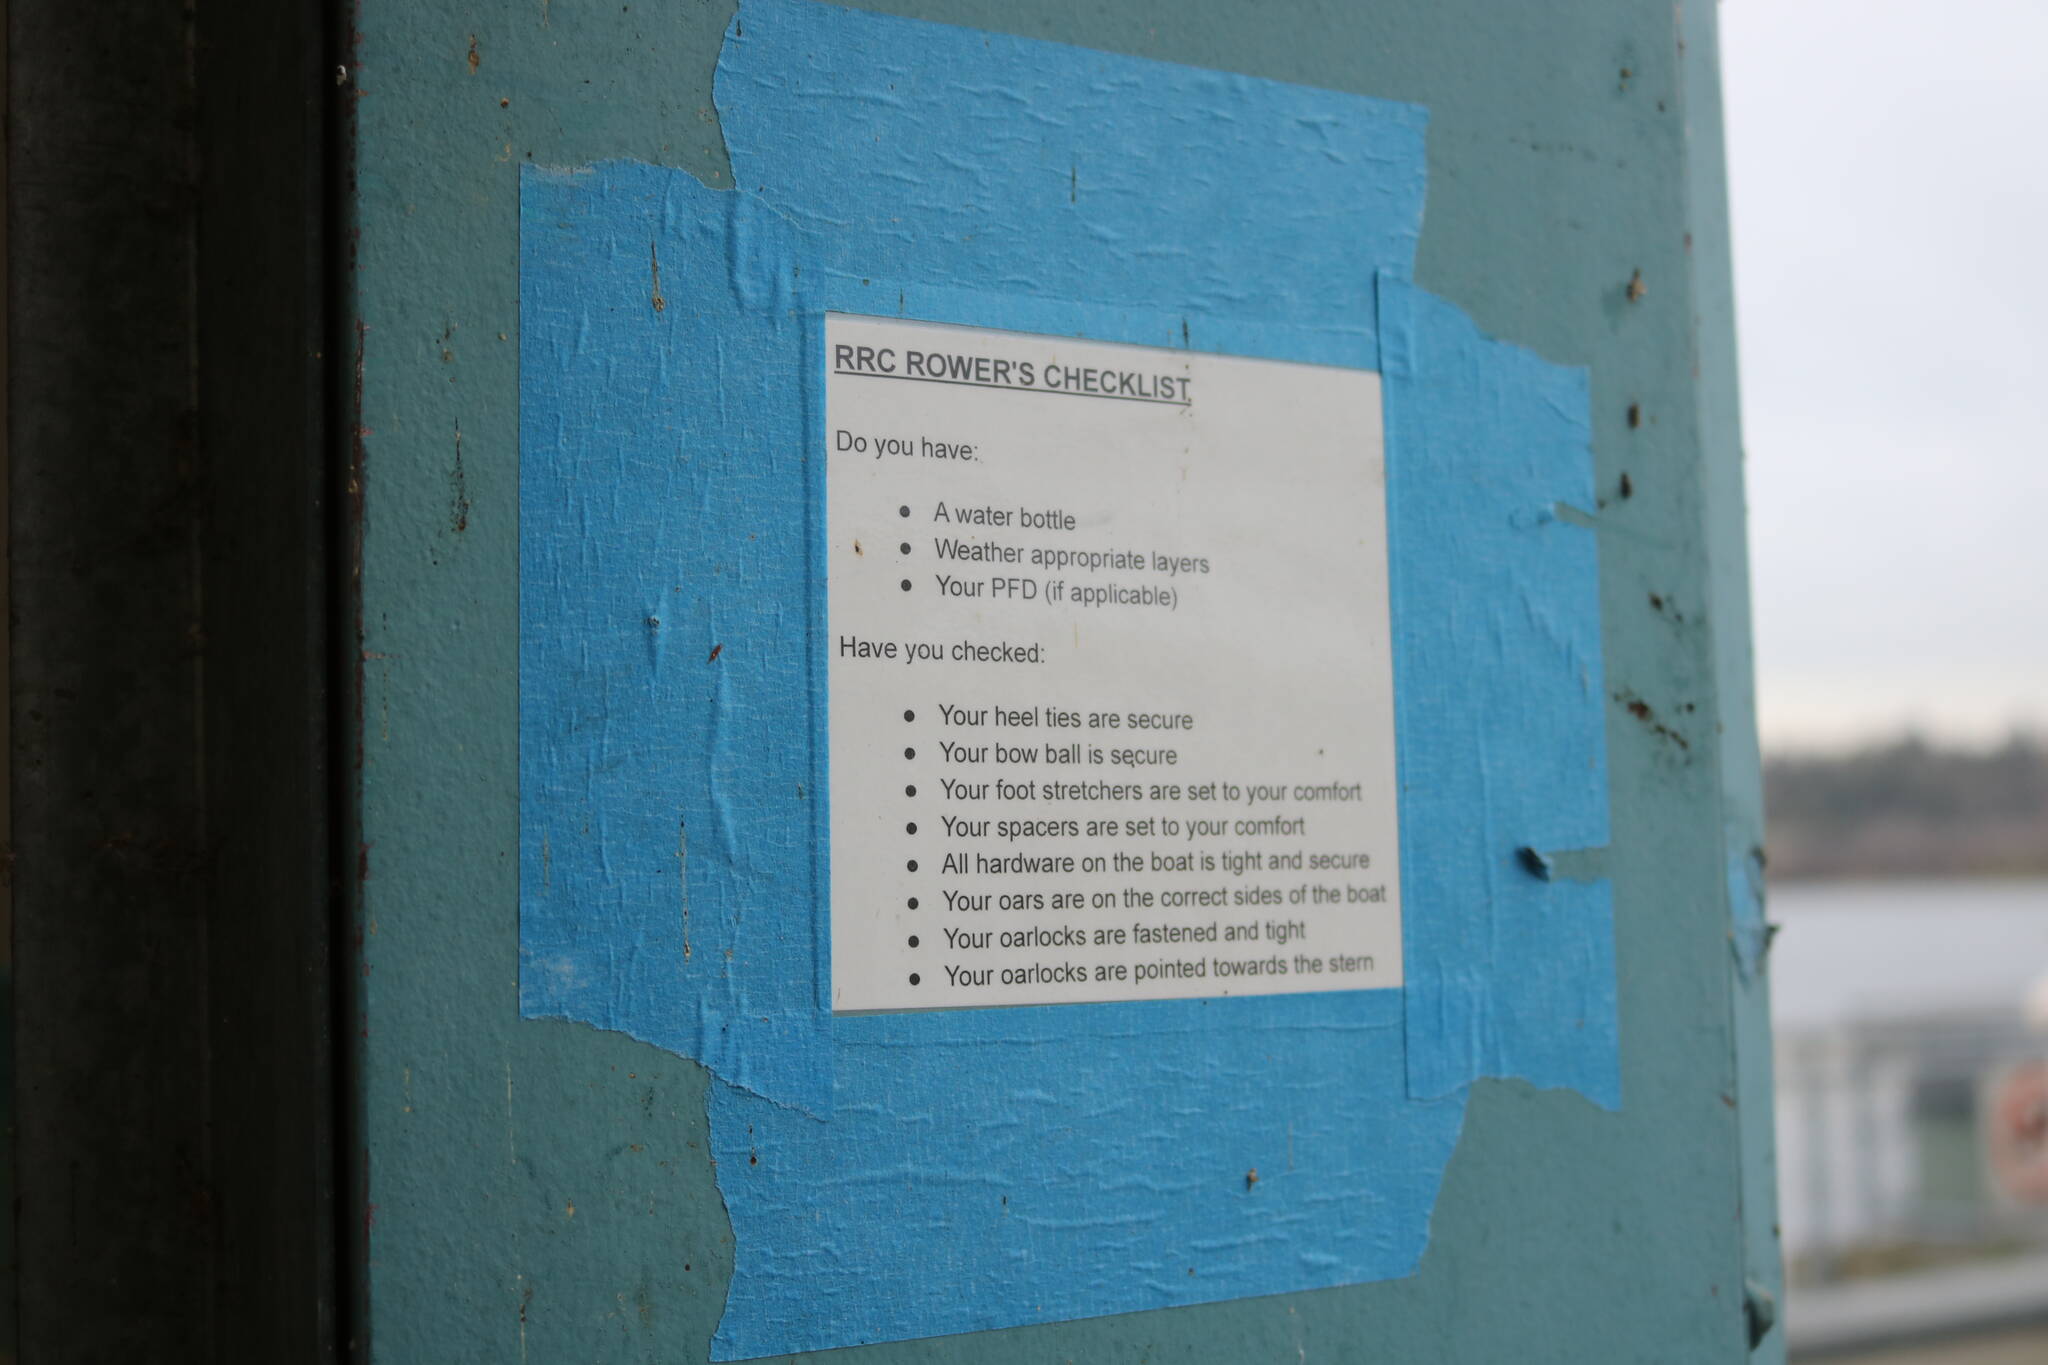 RRC ROWER'S CHECKLIST
Do you have:
• A water bottle
• Weather appropriate layers
• Your PFD (if applicable)
Have you checked:
• Your heel ties are secure
• Your bow ball is secure
• Your foot stretchers are set to your comfort
• Your spacers are set to your comfort
• All hardware on the boat is tight and secure
• Your oars are on the correct sides of the boat
• Your oarlocks are fastened and tight
• Your oarlocks are pointed towards the stern